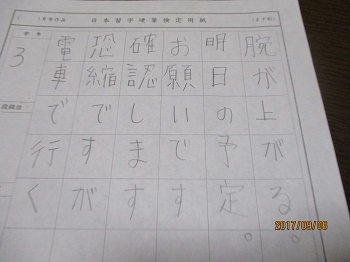 日本習字硬筆検定用紙
腕が上がる。
明日の予定。
お願いです
確認します
恐縮ですが
電車で行く
3
2017/09/06